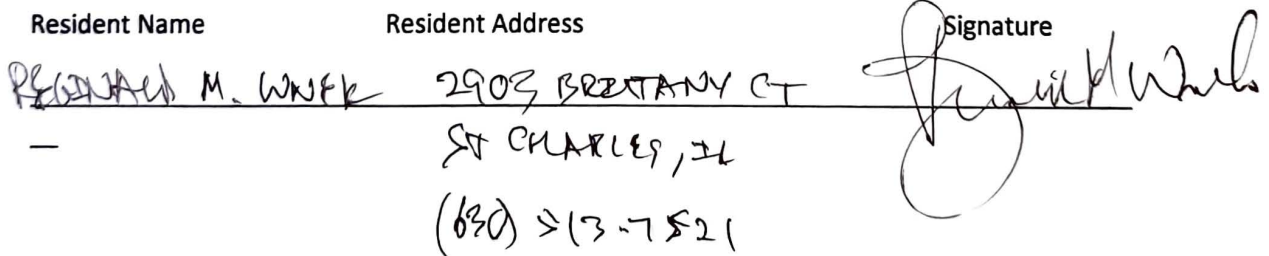 Resident Name Resident Address Signature
REGINALD M. WNEK 2903 BRITTANY CT
—
ST CHARLES, IL
(630) 513-7521